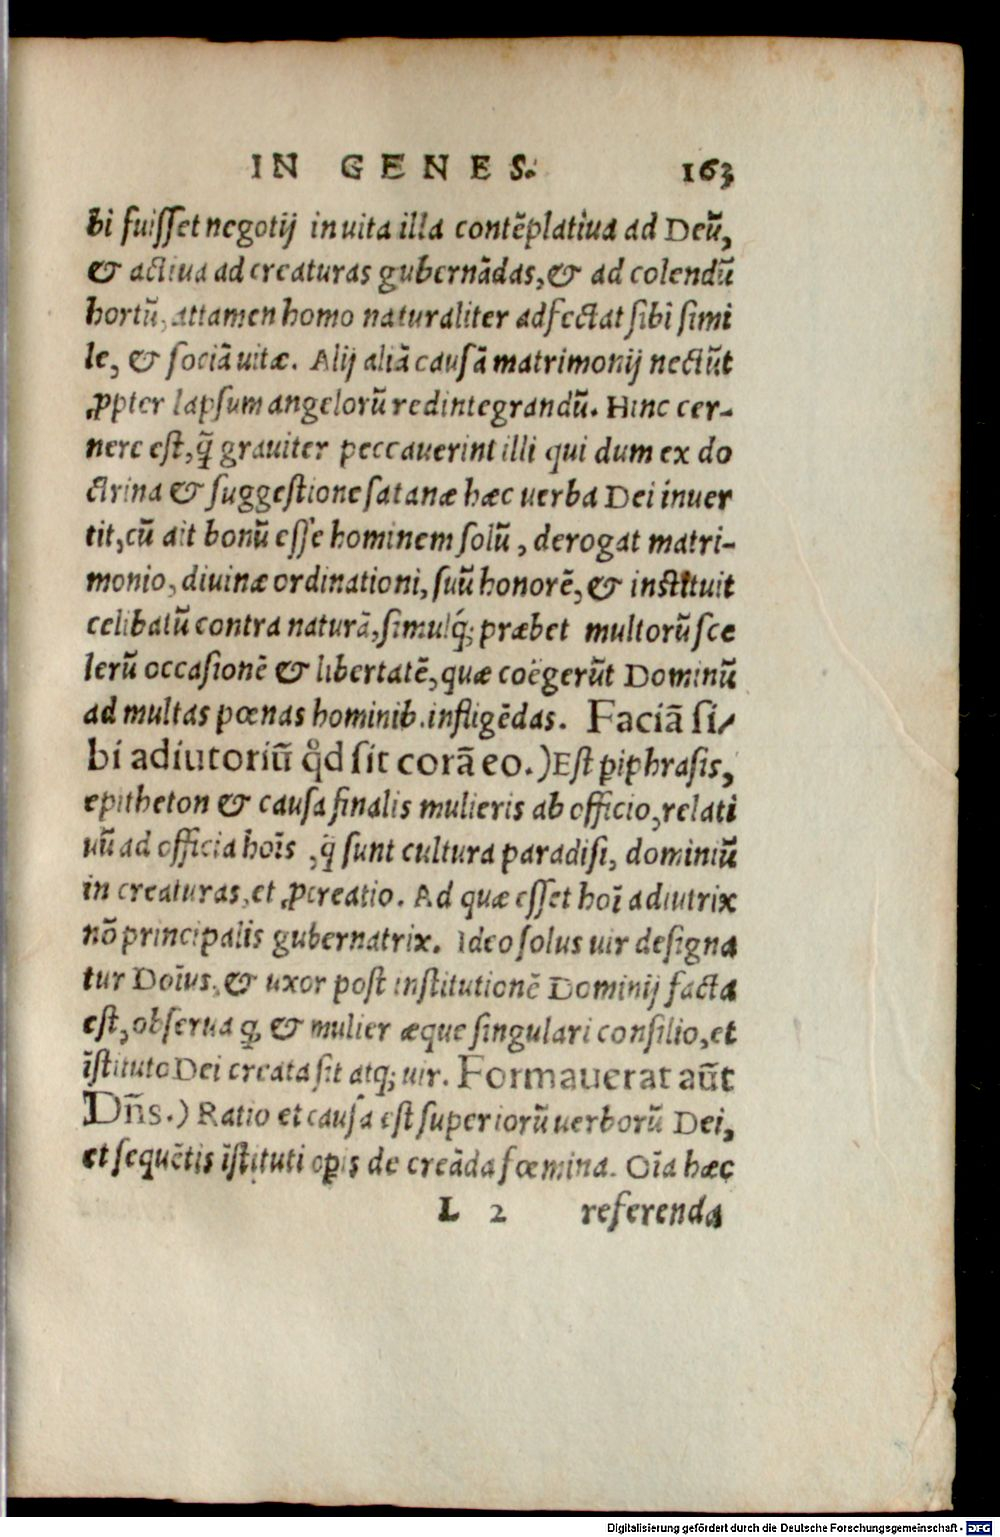 IN GENES. 163
bi fuisset negotij in uita illa contẽplatiua ad Deũ,
& actiua ad creaturas gubernãdas, & ad colendũ
hortũ, attamen homo naturaliter adfectat sibi simi
le, & sociã uitæ. Alij aliã causã matrimonij nectũt
ꝓpter lapsum angelorũ redintegrandũ. Hinc cer-
nere est, q̃ grauiter peccauerint illi qui dum ex do
ctrina & suggestione satanæ hæc uerba Dei inuer
tit, cũ ait bonũ esse hominem solũ, derogat matri-
monio, diuinæ ordinationi, suũ honorẽ, & instituit
celibatũ contra naturã, simulq́; præbet multorũ sce
lerũ occasionẽ & libertatẽ, quæ coëgerũt Dominũ
ad multas pœnas hominib. infligẽdas. Faciã si-
bi adiutoriũ qd̊ sit corã eo.) Est ꝑiphrasis,
epitheton & causa finalis mulieris ab officio, relati
uũ ad officia hoĩs, q̃ sunt cultura paradisi, dominiũ
in creaturas, et ꝓcreatio. Ad quæ esset hoĩ adiutrix
nõ principalis gubernatrix. Ideo solus uir designa
tur Doĩus, & uxor post institutionẽ Dominij facta
est, obserua ꝙ, & mulier æque singulari consilio, et
ĩstituto Dei creata sit atq; uir. Formauerat aũt
Dñs.) Ratio et causa est superiorũ uerborũ Dei,
et sequẽtis ĩstituti oꝑis de creãda fœmina. Oĩa hæc
L 2 referenda
Digitalisierung gefördert durch die Deutsche Forschungsgemeinschaft - DFG